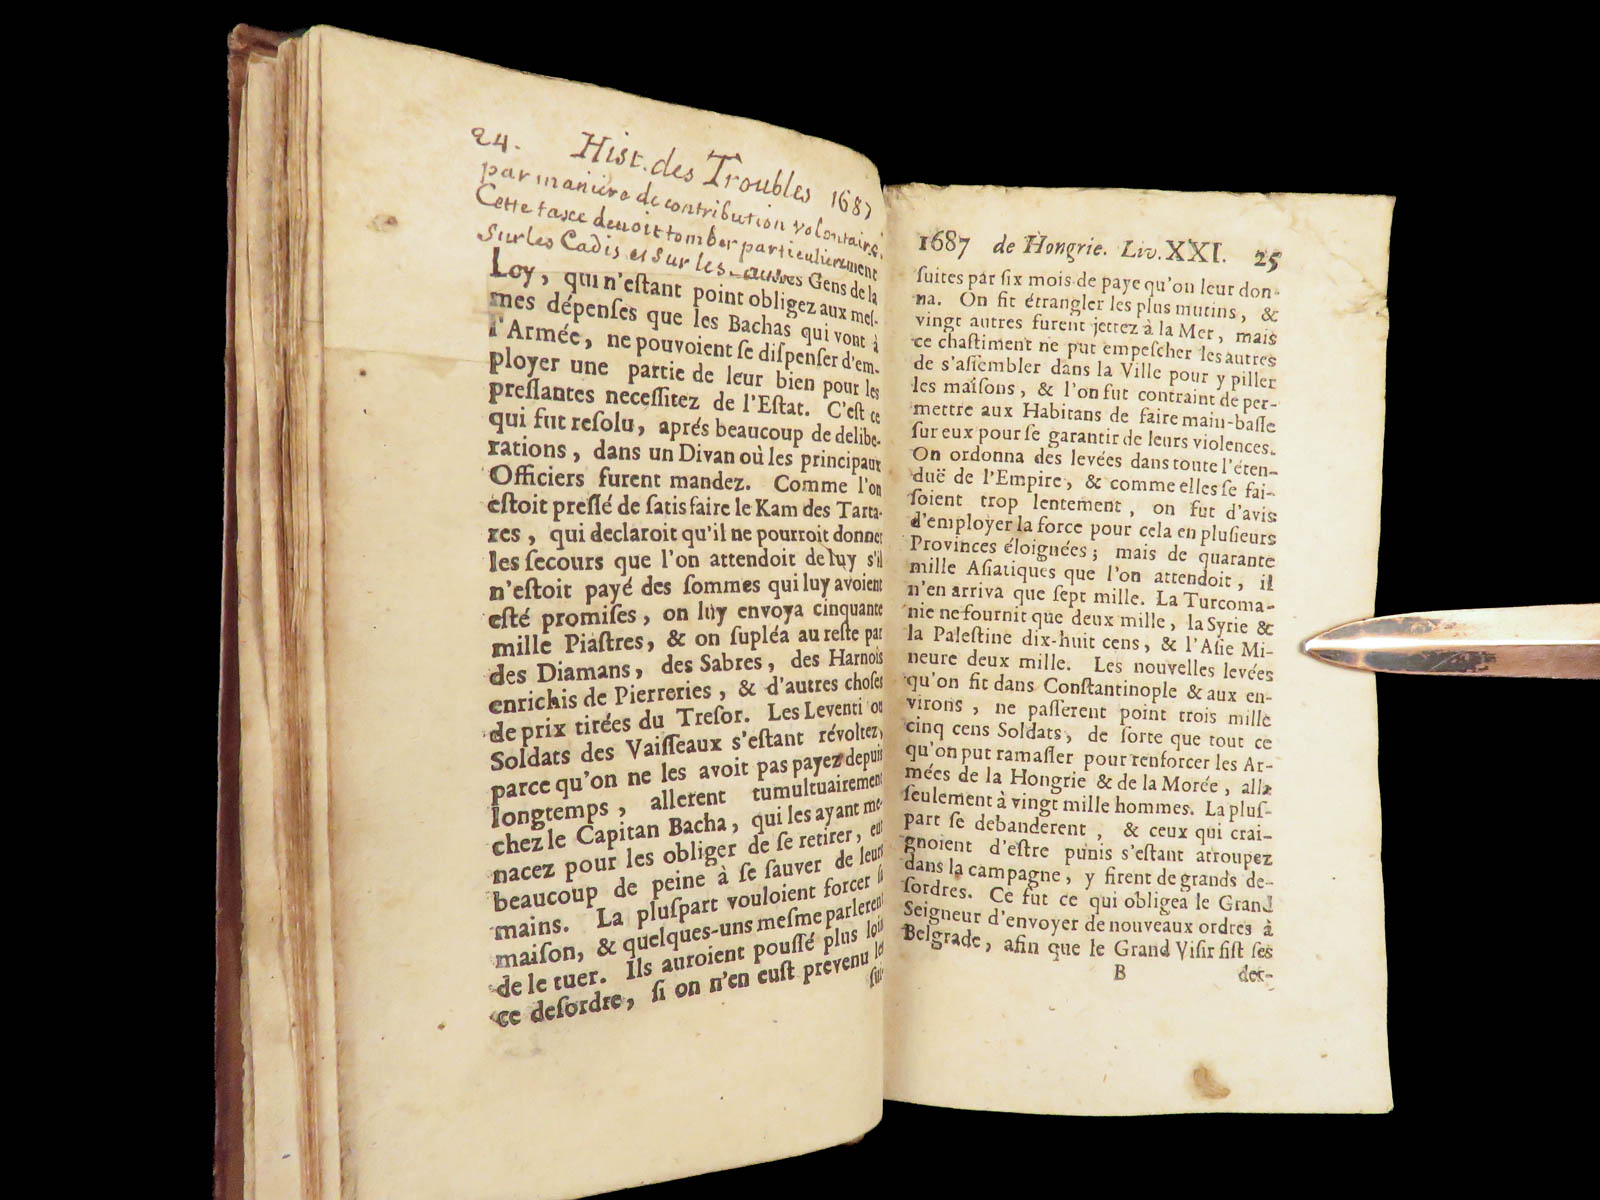 24. Hist. des Troubles 1687
par maniere de contribution volontaire.
Cette taxe devoit tomber particulierement
Sur les Cadis et Sur les autres Gens de la
Loy, qui n'eſtant point obligez aux meſ-
mes dépenſes que les Bachas qui vont à
l'Armée, ne pouvoient ſe diſpenſer d'em-
ployer une partie de leur bien pour les
preſſantes neceſſitez de l'Eſtat. C'eſt ce
qui fut reſolu, aprés beaucoup de delibe-
rations, dans un Divan où les principaux
Officiers furent mandez. Comme l'on
eſtoit preſſé de ſatisfaire le Kam des Tarta-
res, qui declaroit qu'il ne pourroit donner
les ſecours que l'on attendoit de luy s'il
n'eſtoit payé des ſommes qui luy avoient
eſté promiſes, on luy envoya cinquante
mille Piaſtres, & on ſupléa au reſte par
des Diamans, des Sabres, des Harnois
enrichis de Pierreries, & d'autres choſes
de prix tirées du Treſor. Les Leventi ou
Soldats des Vaiſſeaux s'eſtant révoltez,
parce qu'on ne les avoit pas payez depuis
longtemps, allerent tumultuairement
chez le Capitan Bacha, qui les ayant me-
nacez pour les obliger de ſe retirer, eut
beaucoup de peine à ſe ſauver de leurs
mains. La pluſpart vouloient forcer ſa
maiſon, & quelques-uns meſme parlerent
de le tuer. Ils auroient pouſſé plus loin
ce deſordre, ſi on n'en euſt prevenu les
ſui-
1687 de Hongrie. Liv. XXI. 25
ſuites par ſix mois de paye qu'on leur don-
na. On fit étrangler les plus mutins, &
vingt autres furent jettez à la Mer, mais
ce chaſtiment ne put empeſcher les autres
de s'aſſembler dans la Ville pour y piller
les maiſons, & l'on fut contraint de per-
mettre aux Habitans de faire main-baſſe
ſur eux pour ſe garantir de leurs violences.
On ordonna des levées dans toute l'éten-
duë de l'Empire, & comme elles ſe fai-
ſoient trop lentement, on fut d'avis
d'employer la force pour cela en pluſieurs
Provinces éloignées; mais de quarante
mille Aſiatiques que l'on attendoit, il
n'en arriva que ſept mille. La Turcoma-
nie ne fournit que deux mille, la Syrie &
la Paleſtine dix-huit cens, & l'Aſie Mi-
neure deux mille. Les nouvelles levées
qu'on fit dans Conſtantinople & aux en-
virons, ne paſſerent point trois mille
cinq cens Soldats, de ſorte que tout ce
qu'on put ramaſſer pour renforcer les Ar-
mées de la Hongrie & de la Morée, alla
ſeulement à vingt mille hommes. La pluſ-
part ſe debanderent, & ceux qui crai-
gnoient d'eſtre punis s'eſtant atroupez
dans la campagne, y firent de grands de-
ſordres. Ce fut ce qui obligea le Grand
Seigneur d'envoyer de nouveaux ordres à
Belgrade, afin que le Grand Viſir fiſt ſes
B der-